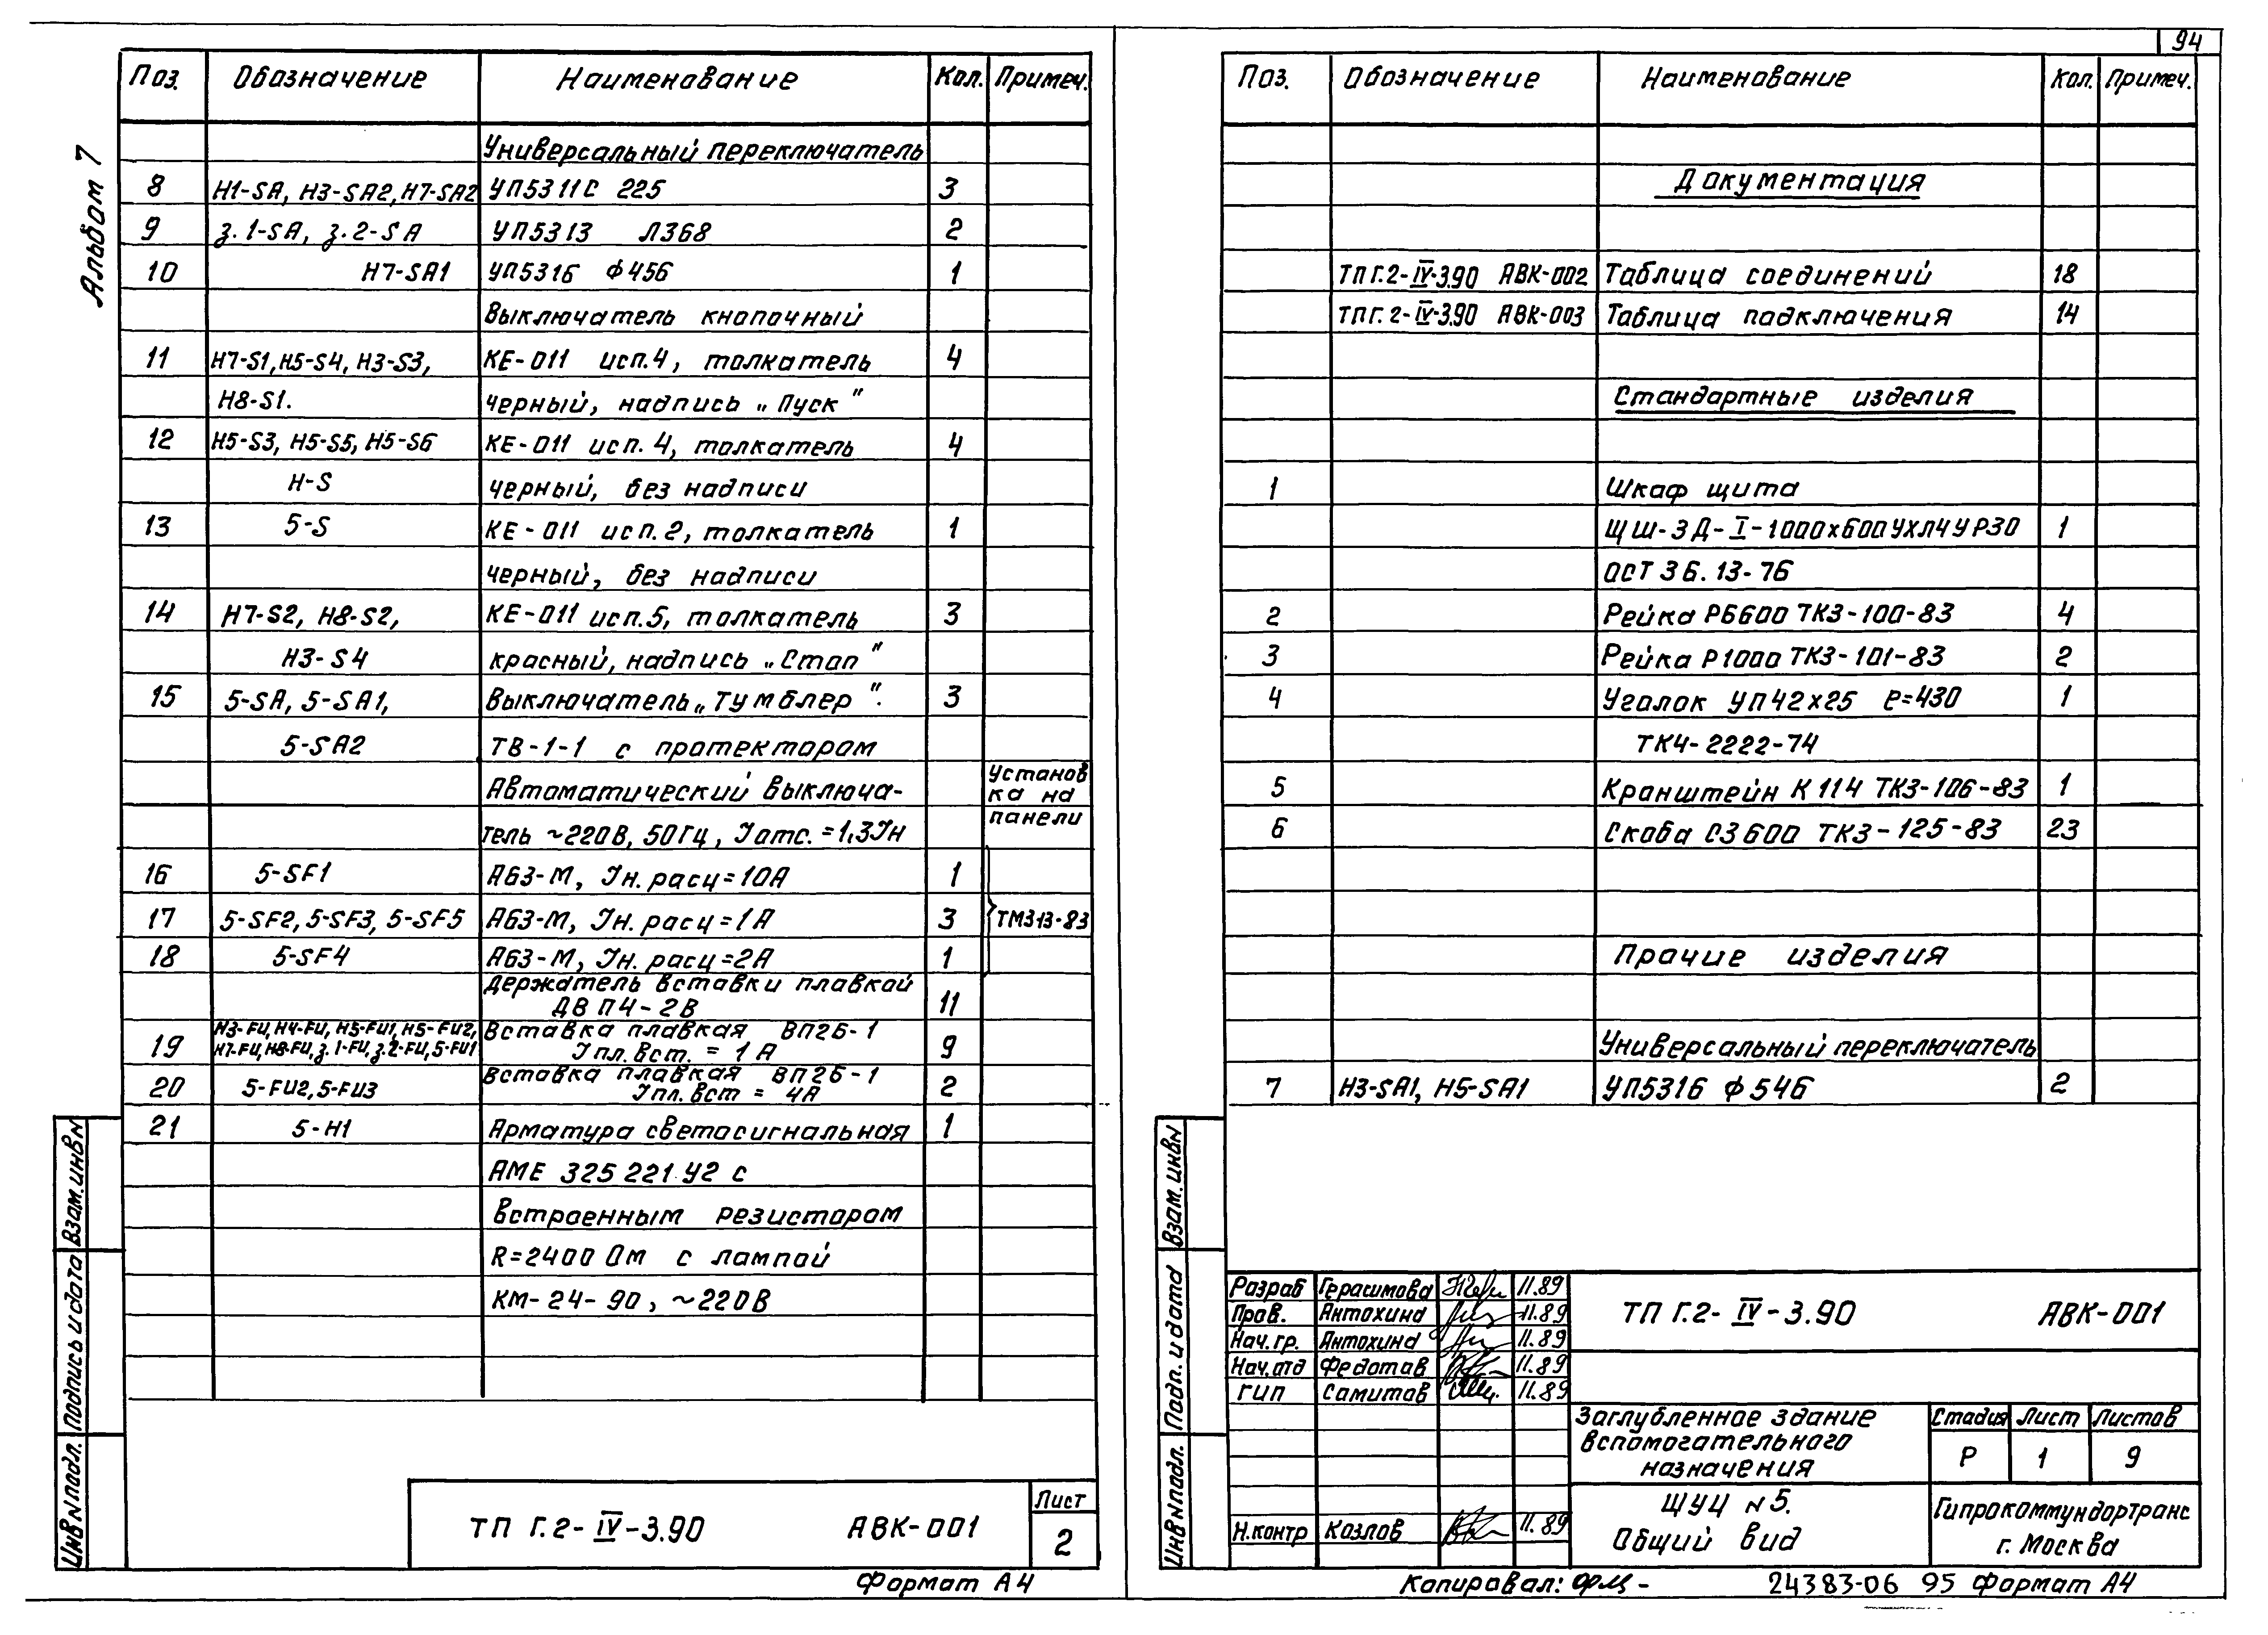 94
Альбом 7
Поз. Обозначение Наименование Кол. Примеч.
Универсальный переключатель
8 Н1-SA, Н3-SA2, Н7-SA2 УП5311С 225 3
9 з.1-SA, з.2-SA УП5313 Л368 2
10 Н7-SA1 УП5316 Ф456 1
Выключатель кнопочный
11 Н7-S1, Н5-S4, Н3-S3, КЕ-011 исп.4, толкатель 4
Н8-S1. черный, надпись „Пуск"
12 Н5-S3, Н5-S5, Н5-S6 КЕ-011 исп.4, толкатель 4
Н-S черный, без надписи
13 5-S КЕ-011 исп.2, толкатель 1
черный, без надписи
14 Н7-S2, Н8-S2, КЕ-011 исп.5, толкатель 3
Н3-S4 красный, надпись „Стоп"
15 5-SA, 5-SA1, Выключатель „Тумблер". 3
5-SA2 ТВ-1-1 с протектором
Автоматический выключа- Установ
ка на
тель ~220В, 50Гц, Iотс.=1,3Iн панели
16 5-SF1 А63-М, Iн.расц=10А 1
17 5-SF2, 5-SF3, 5-SF5 А63-М, Iн.расц=1А 3 ТМ313-83
18 5-SF4 А63-М, Iн.расц=2А 1
Держатель вставки плавкой
ДВП4-2В 11
Н3-FU, Н4-FU, Н5-FU1, Н5-FU2, Вставка плавкая ВП2Б-1
19 Н7-FU, Н8-FU, з.1-FU, з.2-FU, 5-FU1 Iпл.вст. = 1А 9
Вставка плавкая ВП2Б-1
20 5-FU2, 5-FU3 Iпл.вст = 4А 2
21 5-Н1 Арматура светосигнальная 1
АМЕ 325 221 У2 с
встроенным резистором
R=2400 Ом с лампой
КМ-24-90, ~220В
Взам.инв№
Подпись и дата
Инв№подл.
ТП Г.2-IV-3.90 АВК-001
Лист
2
Формат А4
Поз. Обозначение Наименование Кол. Примеч.
Документация
ТП Г.2-IV-3.90 АВК-002 Таблица соединений 18
ТП Г.2-IV-3.90 АВК-003 Таблица подключения 14
Стандартные изделия
1 Шкаф щита
ЩШ-ЗД-I-1000х600 УХЛ4 УР30 1
ОСТ 36.13-76
2 Рейка РБ600 ТК3-100-83 4
3 Рейка Р1000 ТК3-101-83 2
4 Уголок УП42х25 ℓ=430 1
ТК4-2222-74
5 Кронштейн К114 ТК3-106-83 1
6 Скоба С3600 ТК3-125-83 23
Прочие изделия
Универсальный переключатель
7 Н3-SA1, Н5-SA1 УП5316 Ф546 2
Взам.инв№
Подп. и дата
Инв№подл.
Разраб Герасимова 11.89
Пров. Антохина 11.89
Нач.гр. Антохина 11.89
Нач.отд Федотов 11.89
ГИП Самитов 11.89
Н.контр Козлов 11.89
ТП Г.2-IV-3.90 АВК-001
Заглубленное здание
вспомогательного
назначения
Стадия Лист Листов
Р 1 9
ЩУЦ №5.
Общий вид
Гипрокоммундортранс
г. Москва
Копировал:
24383-06 95 Формат А4